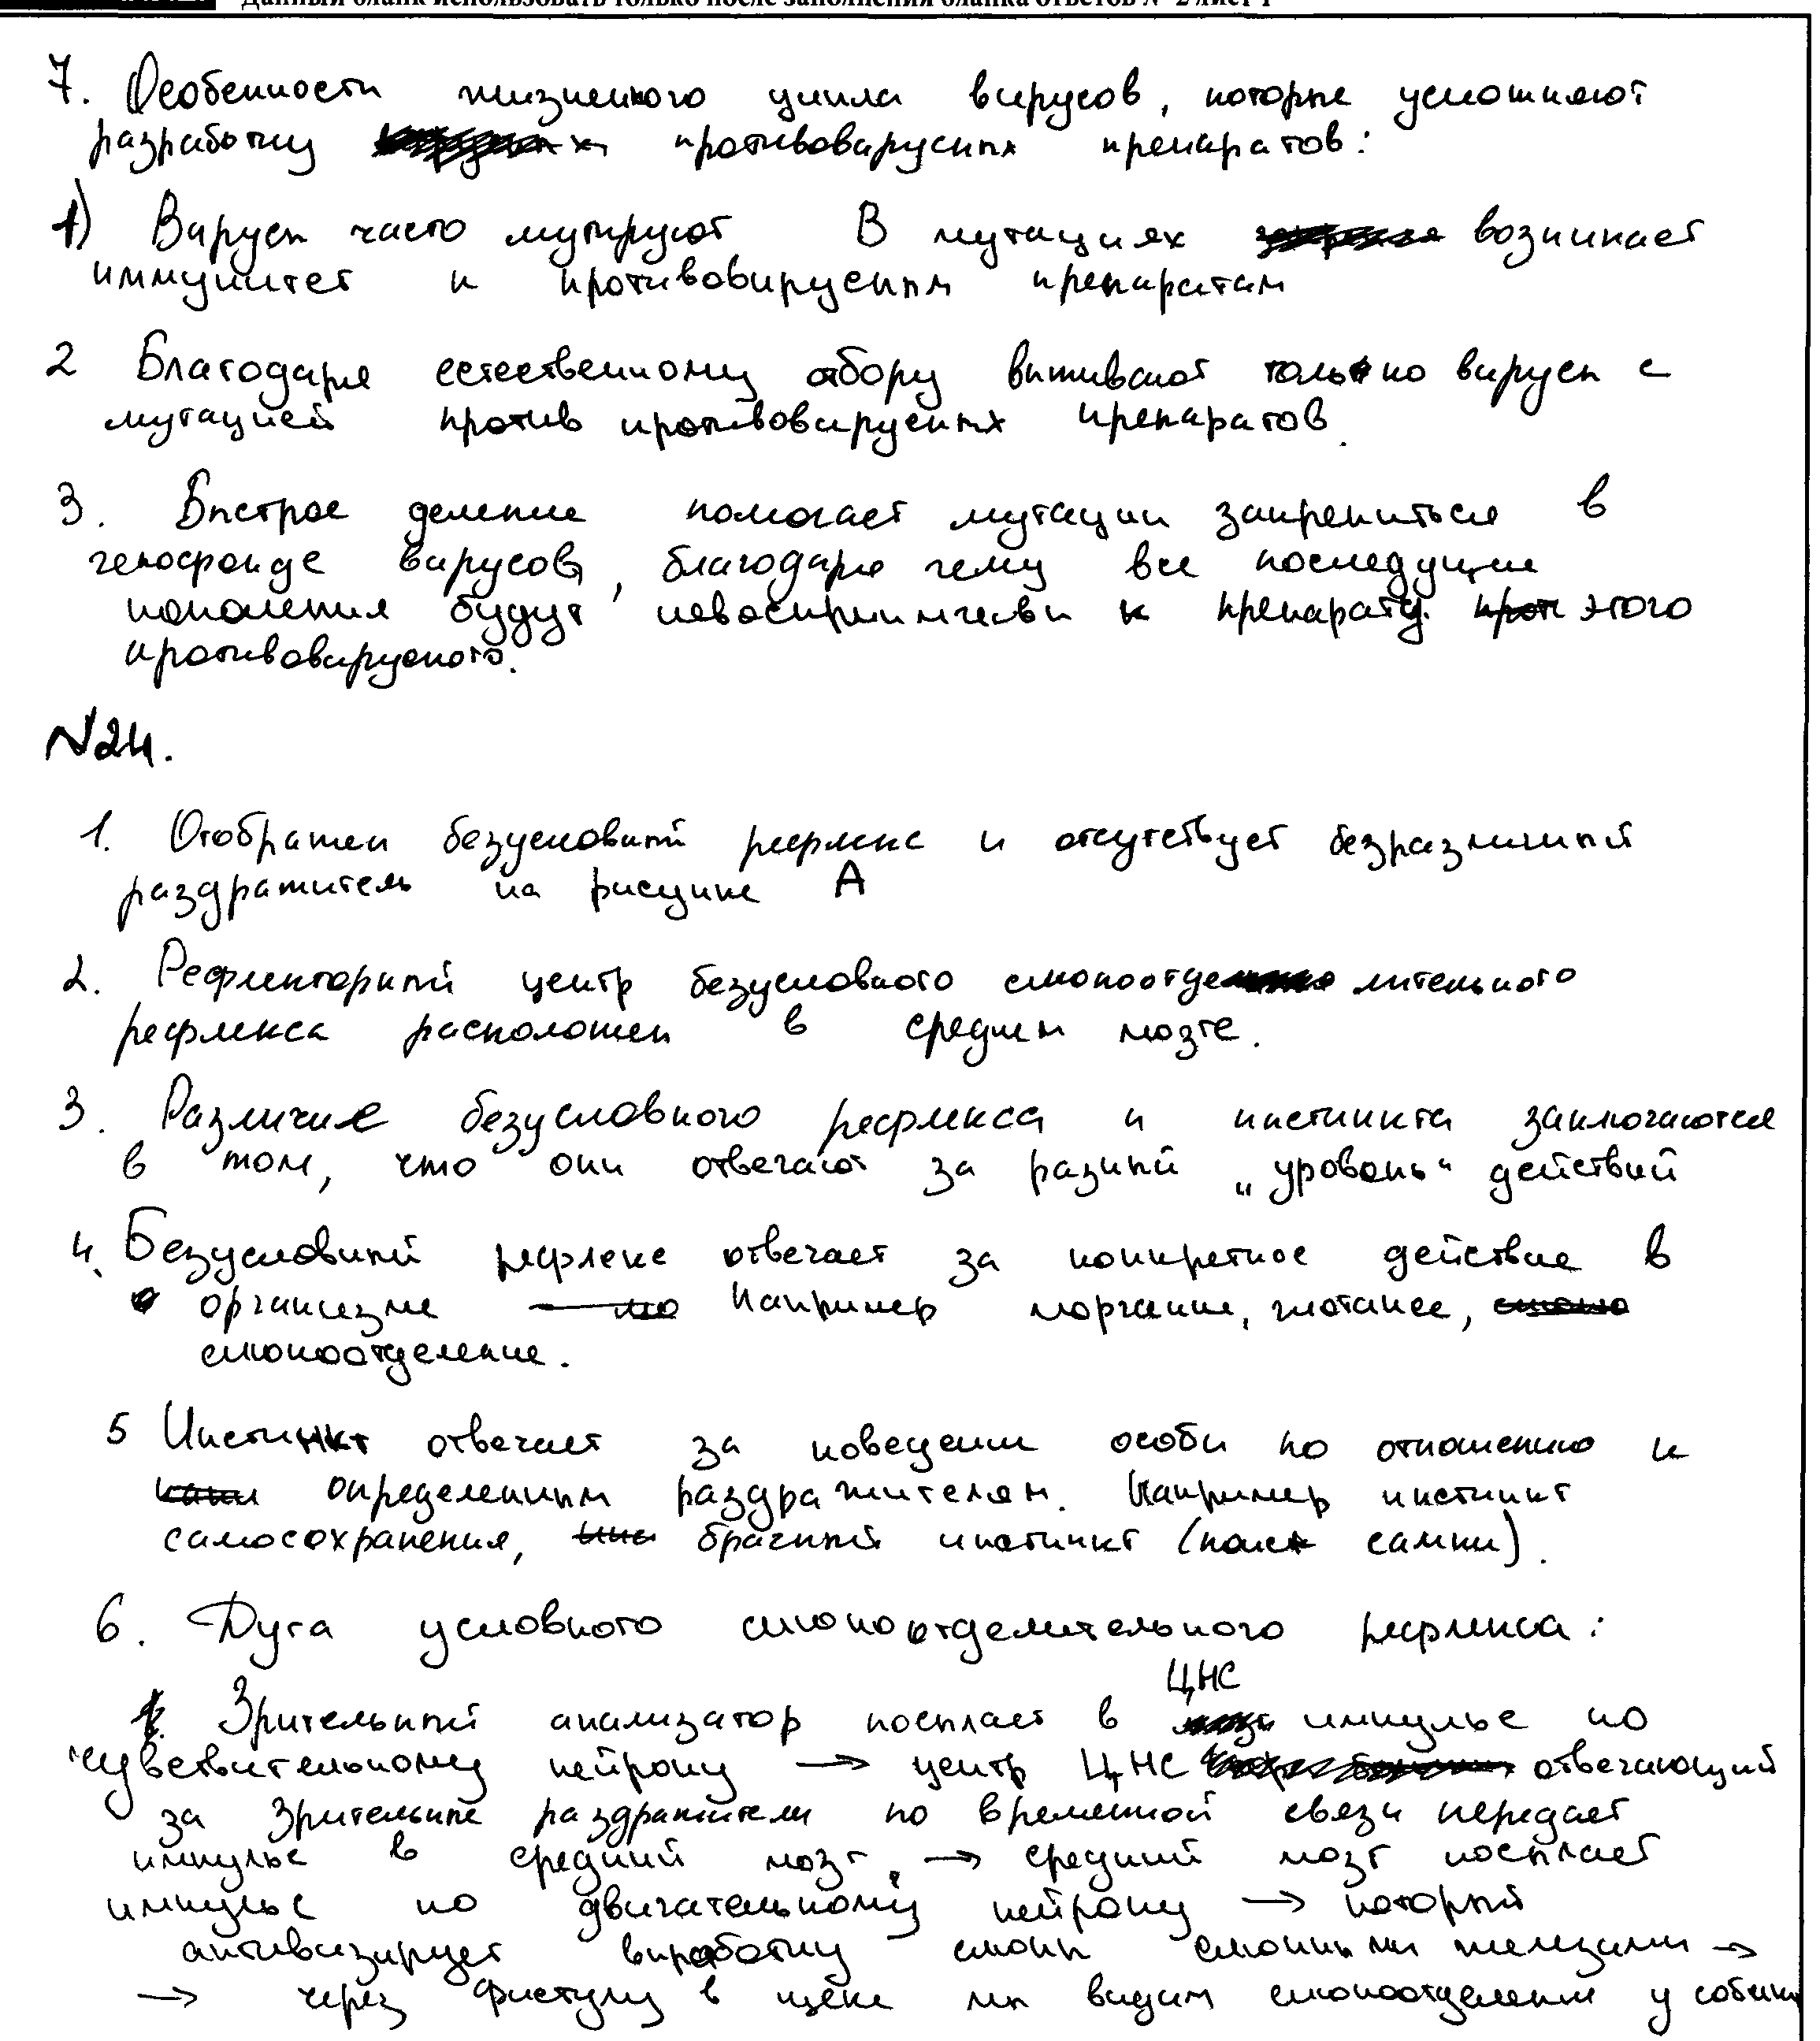 Данный бланк использовать только после заполнения бланка ответов № 2 лист 1
7. Особенности жизненного цикла вирусов, которые усложняют
разработку противовирусных препаратов:
1) Вирусы часто мутируют В мутациях возникает
иммунитет к противовирусным препаратам
2 Благодаря естественному отбору выживают только вирусы с
мутацией против противовирусных препаратов.
3. Быстрое деление помогает мутации закрепиться в
генофонде вирусов, благодаря чему все последующие
поколения будут невосприимчивы к препарату. этого
противовирусного.
№24.
1. Отображен безусловный рефлекс и отсутствует безразличный
раздражитель на рисунке А
2. Рефлекторный центр безусловного слюноотделительного
рефлекса расположен в среднем мозге.
3. Различие безусловного рефлекса и инстинкта заключаются
в том, что они отвечают за разный „уровень“ действий
4. Безусловный рефлекс отвечает за конкретное действие в
организме Например моргание, глотание,
слюноотделение.
5 Инстинкт отвечает за поведение особи по отношению к
определенным раздражителям. Например инстинкт
самосохранения, брачный инстинкт (поиск самки).
6. Дуга условного слюноотделительного рефлекса:
ЦНС
Зрительный анализатор посылает в импульс по
чувствительному нейрону → центр ЦНС отвечающий
за зрительные раздражители по временной связи передает
импульс в средний мозг. → средний мозг посылает
импульс по двигательному нейрону → который
активизирует выработку слюны слюнными железами →
→ через фистулу в щеке мы видим слюноотделение у собаки